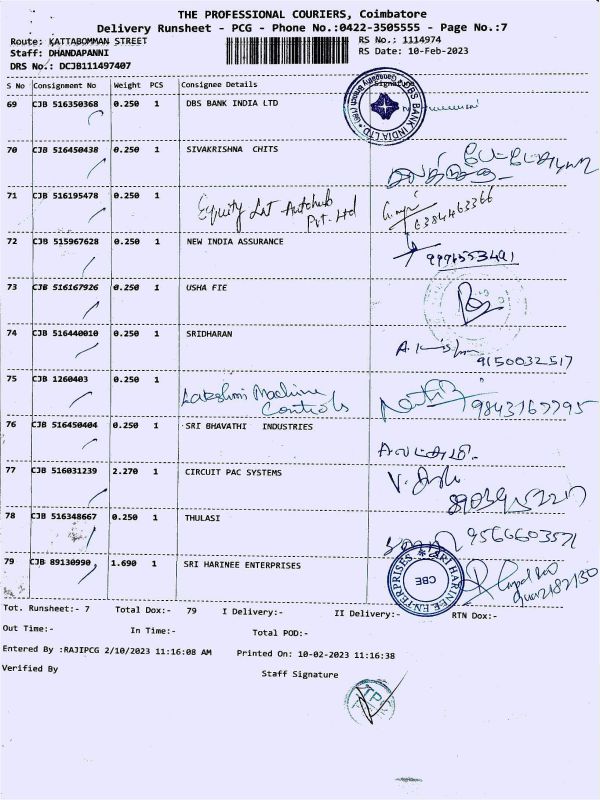 THE PROFESSIONAL COURIERS, Coimbatore
Delivery Runsheet - PCG - Phone No.:0422-3505555 - Page No.:7
Route: KATTABOMMAN STREET
RS No.: 1114974
Staff: DHANDAPANNI
RS Date: 10-Feb-2023
DRS No.: DCJB111497407
S No Consignment No Weight PCS Consignee Details Signature
69 CJB 516350368 0.250 1 DBS BANK INDIA LTD
DBS BANK INDIA LTD
70 CJB 516450438 0.250 1 SIVAKRISHNA CHITS
71 CJB 516195478 0.250 1 Equity Lat Autohub
Pvt. Ltd
6384463366
72 CJB 515967628 0.250 1 NEW INDIA ASSURANCE
73 CJB 516167926 0.250 1 USHA FIE
74 CJB 516440010 0.250 1 SRIDHARAN
9150032517
75 CJB 1260403 0.250 1 Lakshmi Machine
Controls
76 CJB 516450404 0.250 1 SRI BHAVATHI INDUSTRIES
77 CJB 516031239 2.270 1 CIRCUIT PAC SYSTEMS
78 CJB 516348667 0.250 1 THULASI
9566603571
79 CJB 89130990 1.690 1 SRI HARINEE ENTERPRISES
SRI HARINEE ENTERPRISES
CBE
Tot. Runsheet:- 7 Total Dox:- 79 I Delivery:- II Delivery:- RTN Dox:-
Out Time:- In Time:- Total POD:-
Entered By :RAJIPCG 2/10/2023 11:16:08 AM Printed On: 10-02-2023 11:16:38
Verified By
Staff Signature
TP